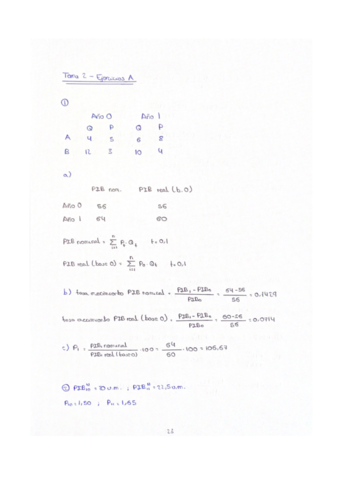 Tema I - Ejercicios A
①
Año 0 Año 1
Q P Q P
A 4 5 6 8
B 12 3 10 4
a)
PIB nom. PIB real (b. 0)
Año 0 56 56
Año 1 64 60
PIB nominal = Σ Pt · Qt t = 0,1
PIB real (base 0) = Σ P0 · Qt t = 0,1
b) tasa crecimiento PIB nominal = PIB1 - PIB0 / PIB0 = 64 - 56 / 56 = 0.1429
tasa crecimiento PIB real (base 0) = PIB1 - PIB0 / PIB0 = 60 - 56 / 56 = 0.0714
c) P1 = PIB1 nominal / PIB1 real (base 0) · 100 = 64 / 60 · 100 = 106.67
P10 = 1.50 ; P11 = 1.65